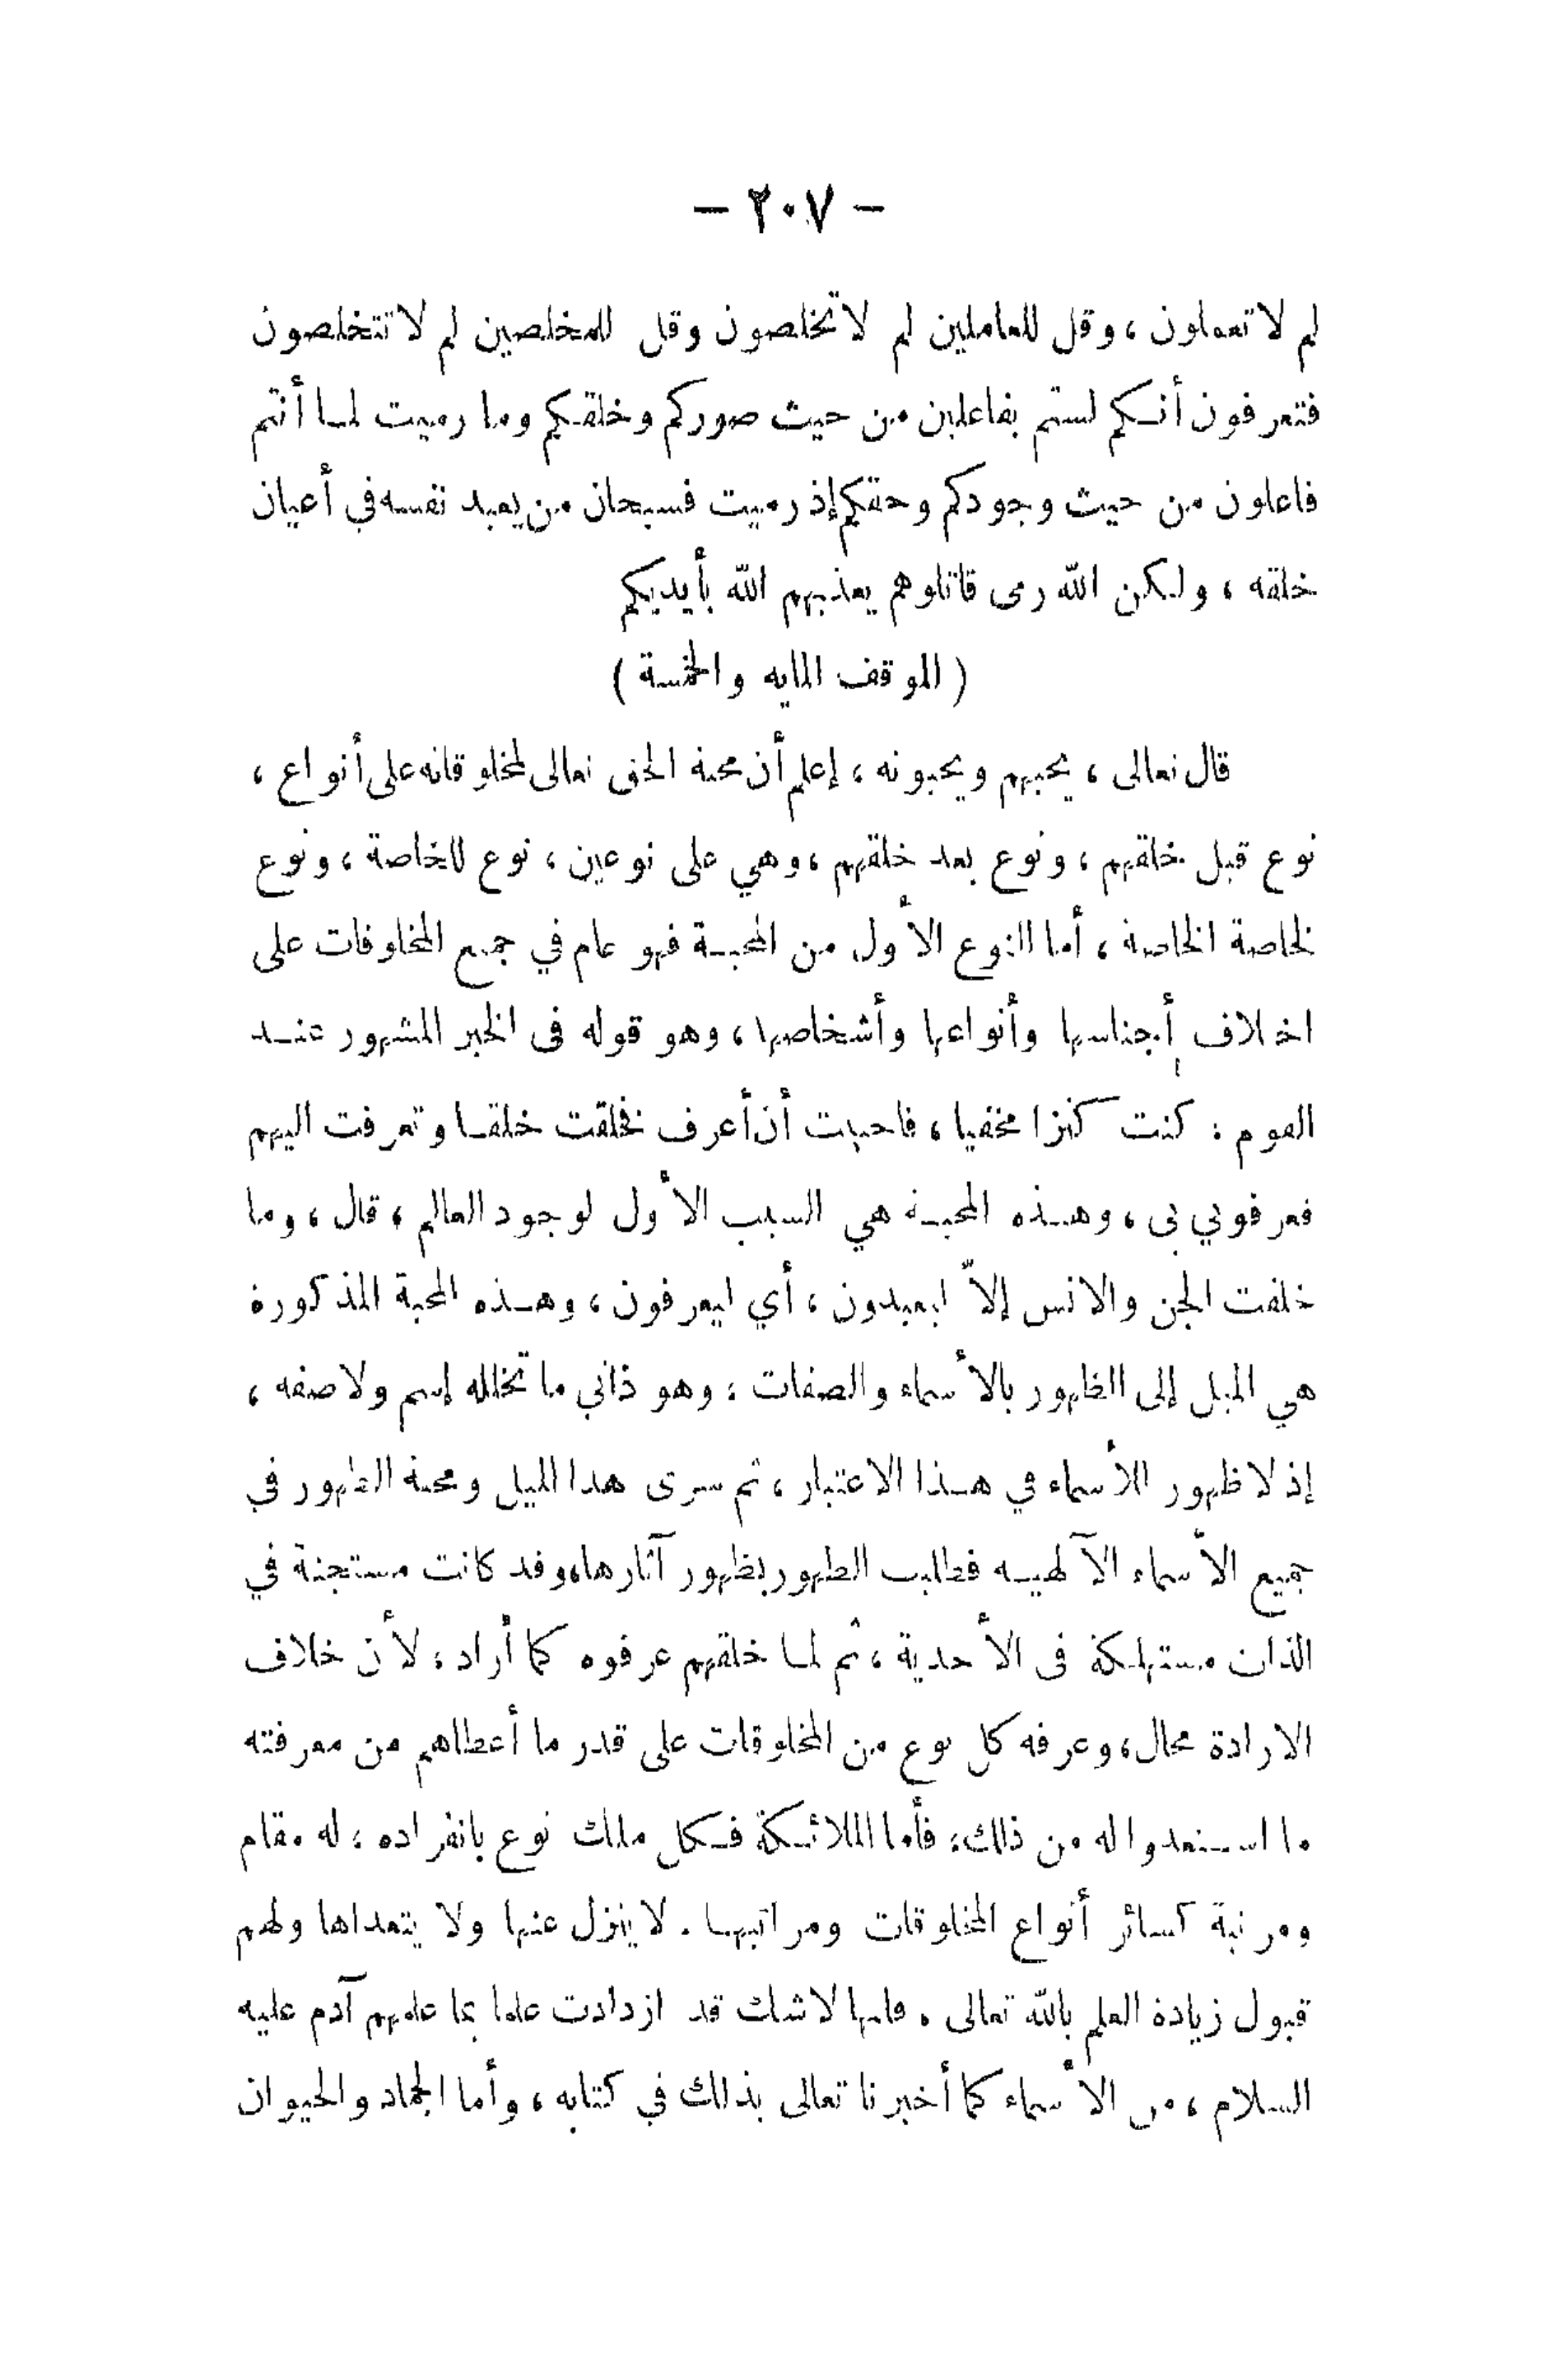 - ٢٠٧ -
لم لا تعملون ، وقل للعاملين لم لا تخلصون وقل للمخلصين لم لا تتخلصون
فتعرفون أنكم لستم بفاعلين من حيث صوركم وخلقكم وما رميت لما أنتم
فاعلون من حيث وجودكم وحقكم إذ رميت فسبحان من يعبد نفسه في أعيان
خلقه ، ولكن الله رمى قاتلوهم يعذبهم الله بأيديكم
( الموقف المايه والخمسة )
قال تعالى ، يحبهم ويحبونه ، إعلم أن محبة الحق تعالى لمخلوقاته على أنواع ،
نوع قبل خلقهم ، ونوع بعد خلقهم ، وهي على نوعين ، نوع للخاصة ، ونوع
لخاصة الخاصة ، أما النوع الأول من المحبة فهو عام في جميع المخلوقات على
اختلاف أجناسها وأنواعها وأشخاصها ، وهو قوله فى الخبر المشهور عند
القوم : كنت كنزا مخفيا ، فاحببت أن أعرف فخلقت خلقا وتعرفت اليهم
فعرفوني بى ، وهذه المحبة هي السبب الأول لوجود العالم ، قال ، وما
خلقت الجن والانس إلاّ ليعبدون ، أي ليعرفون ، وهذه المحبة المذكورة
هي الميل إلى الظهور بالأسماء والصفات ، وهو ذاتي ما تخلله إسم ولا صفه ،
إذ لا ظهور للأسماء في هذا الاعتبار ، ثم سرى هذا الميل ومحبة الظهور في
جميع الأسماء الآلهيه فطلبت الظهور بظهور آثارها ، وقد كانت مستجنة في
الذات مستهلكة فى الأحدية ، ثم لما خلقهم عرفوه كما أراد ، لأن خلاف
الارادة محال ، وعرفه كل نوع من المخلوقات على قدر ما أعطاهم من معرفته
ما استعدوا له من ذلك ، فأما الملائكة فكل ملك نوع بانفراده ، له مقام
ومرتبة كسائر أنواع المخلوقات ومراتبها . لا ينزل عنها ولا يتعداها ولهم
قبول زيادة العلم بالله تعالى . فانها لا شك قد ازدادت علما بما علمهم آدم عليه
السلام ، من الأسماء كما أخبرنا تعالى بذلك في كتابه ، وأما الجماد والحيوان